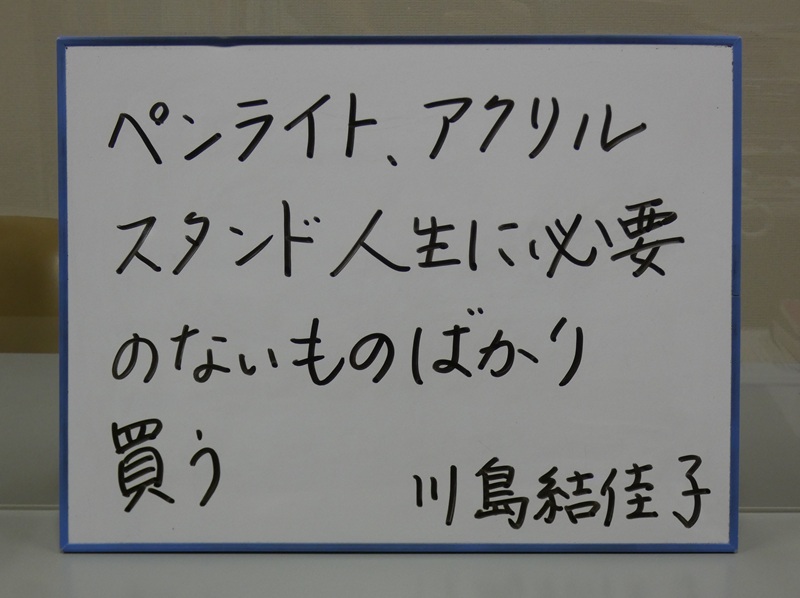 ペンライト、アクリル
スタンド人生に必要
のないものばかり
買う
川島結佳子